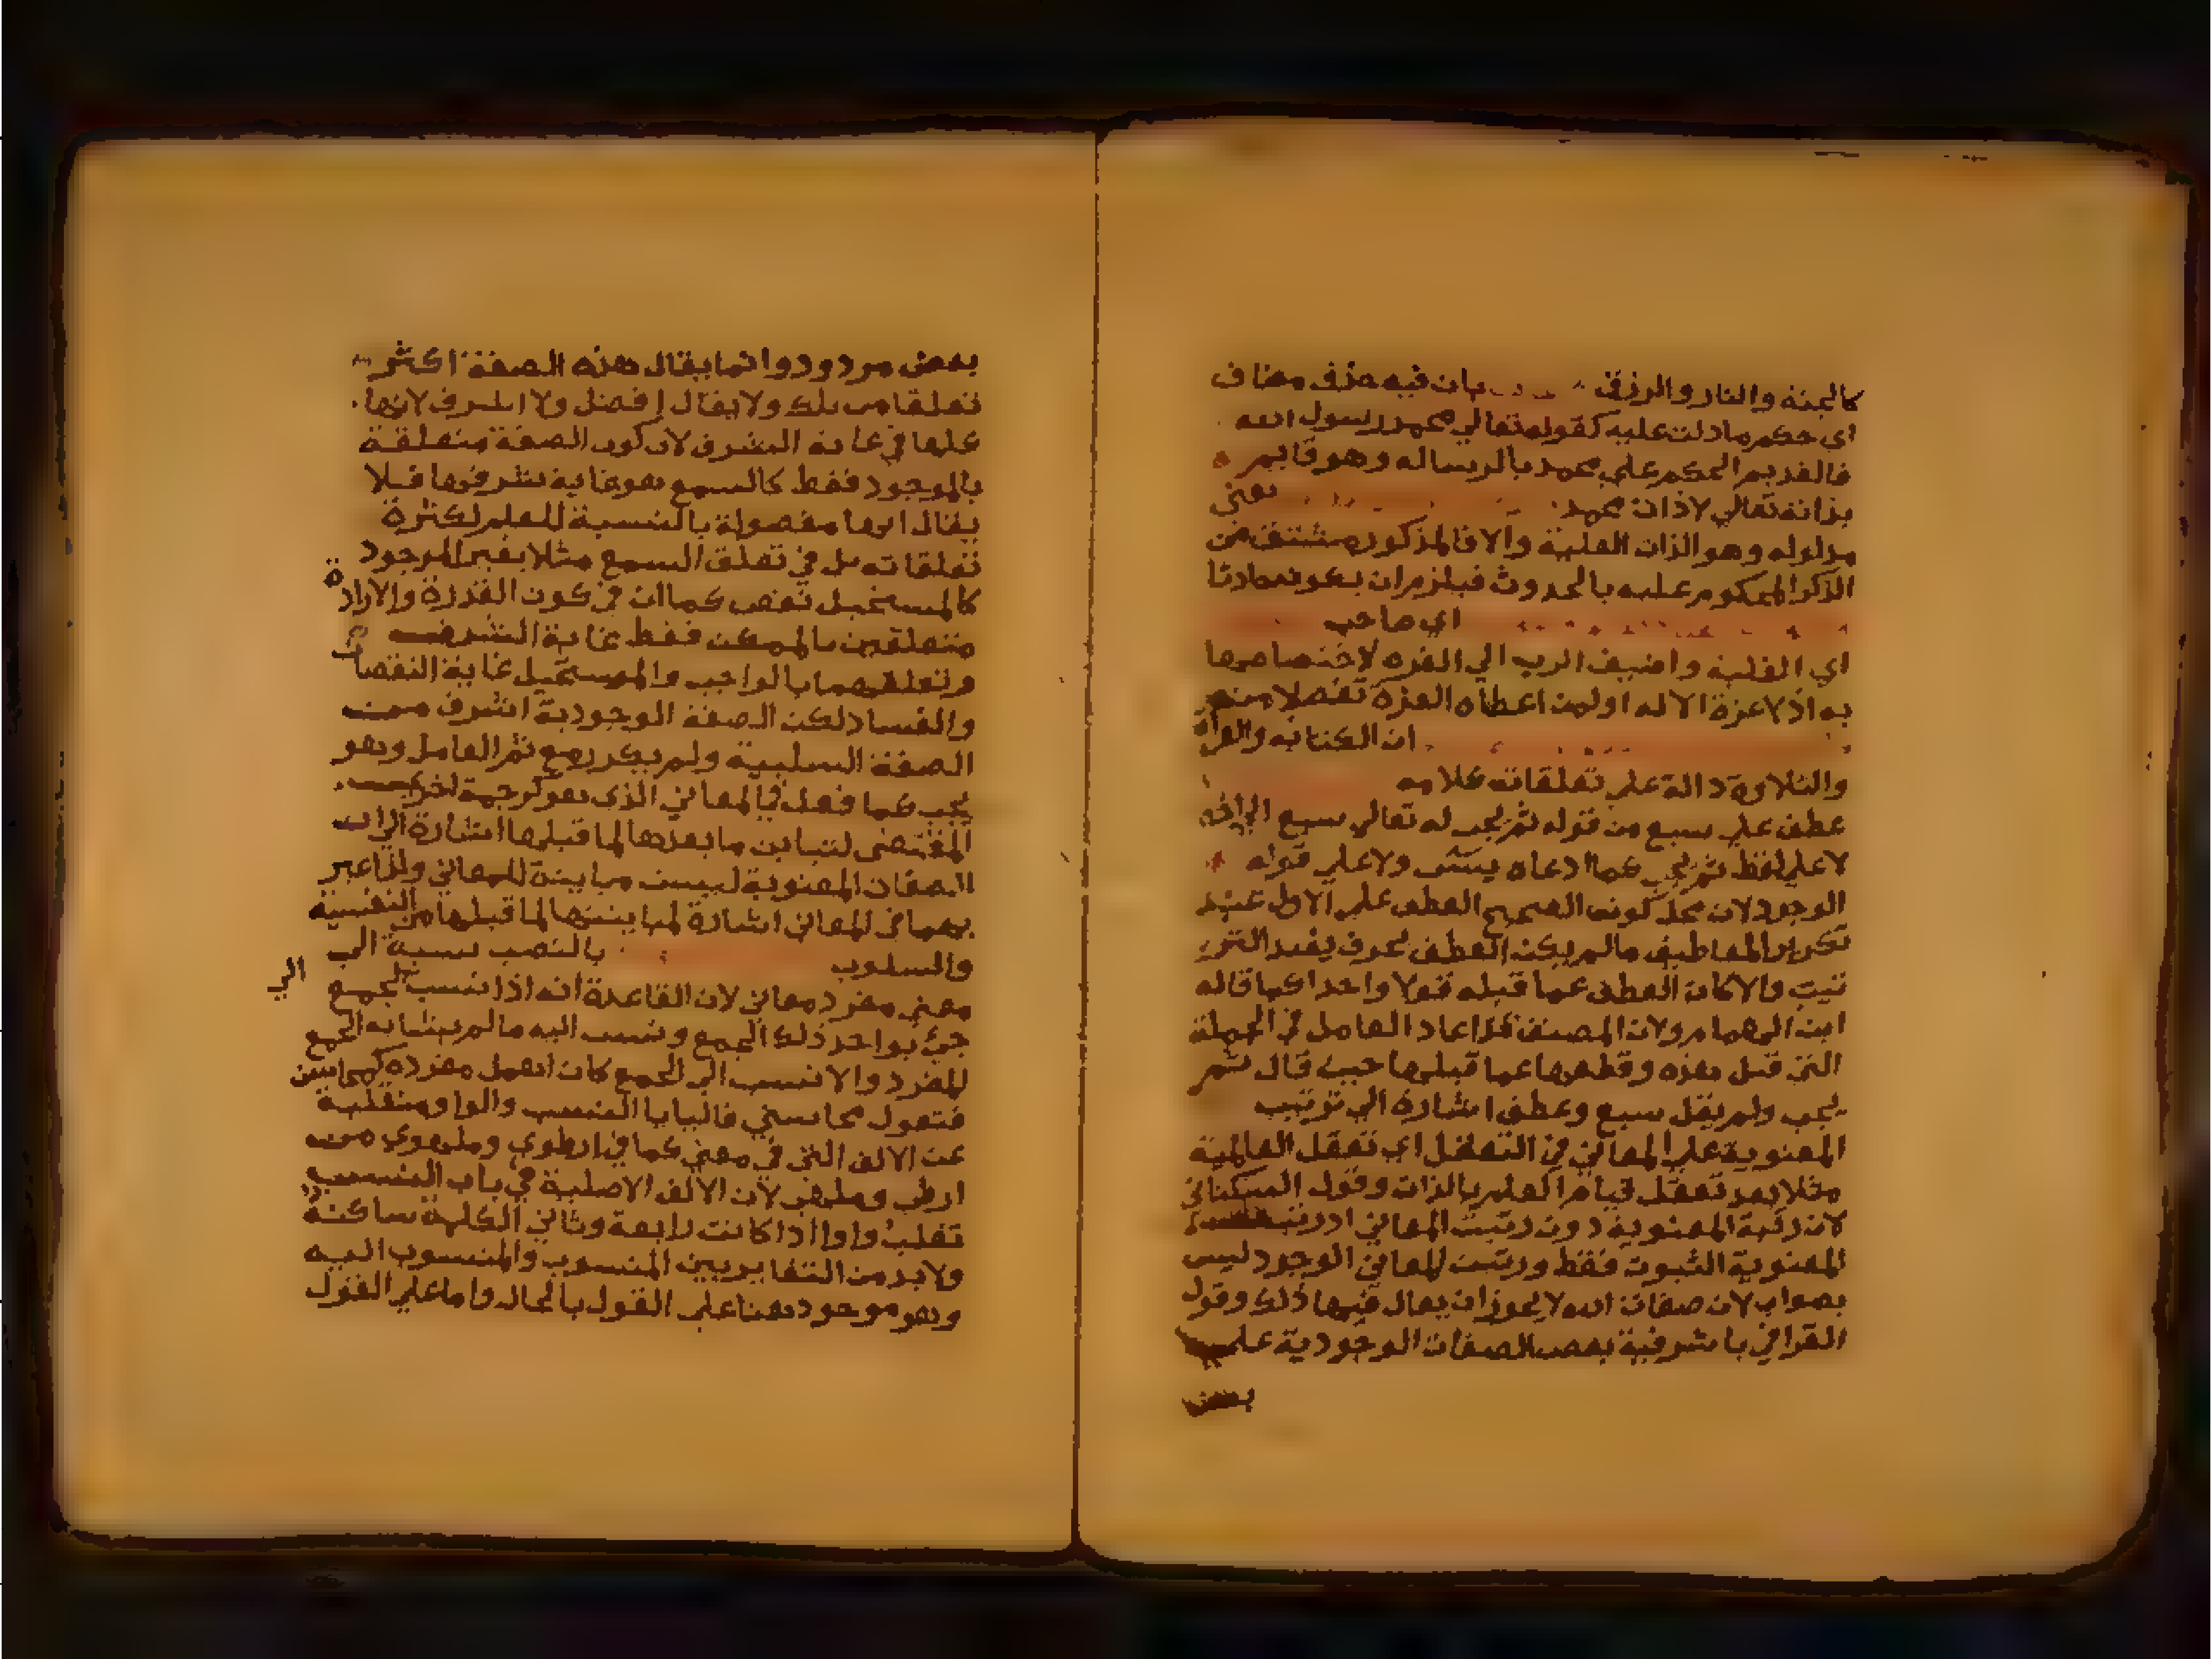 كالجنة والنار والرزق بان فيه حذف مضاف
اي حكم ما دلت عليه كقوله تعالي محمد رسول الله
فالقديم الحكم علي محمد بالرساله وهو قايم
بذاته تعالي لا ذات محمد يعني
مدلوله وهو الذات العلية والا فالمذكور مشتق من
الذكر المحكوم عليه بالحدوث فيلزم ان يكون حادثا
اي صاحب
اي الغلبة واضيف الرب الي العزه لاختصاصها
به اذ لا عزة الا له او لمن اعطاه العزة تفضلا منه
ان الكتابه والقرأة
والتلاوة دالة علي تعلقات كلامه
عطف علي سبع من قوله ثم يجب له تعالي سبع الي اخره
لا علي لفظ ثم يجب كما ادعاه يس ولا علي قوله
الوجود لان محل كون الصحيح العطف علي الاول عند
تكرير المعاطيف ما لم يكن العطف بحرف يفيد التر
تيب والا كان العطف عما قبله قولا واحدا كما قاله
ابن الهمام ولان المصنف قد اعاد العامل في الجملة
التي قبل هذه وقطعها عما قبلها حيث قال ثم
يجب ولم يقل سبع وعطف اشارة الي ترتيب
المعنوية علي المعاني في التعقل اي تعقل العالمية
مثلا بعد تعقل قيام العلم بالذات وقول السكتاني
لان رتبة المعنوية دون رتبت المعاني اذ رتبة
المعنوية الثبوت فقط ورتبت المعاني الوجود ليس
بصواب لان صفات الله لا يجوز ان يقال فيها ذلك وقول
القرافي باشرفية بعض الصفات الوجودية علي
بعض
بعض مردود وانما يقال هذه الصفة اكثر
تعلقا من تلك ولا يقال افضل ولا اشرف لانها
كلها في غاية الشرف لان كون الصفة متعلقة
بالموجود فقط كالسمع هو غاية شرفها فلا
يقال انها مفضولة بالنسبة للعلم لكثرة
تعلقاته بل في تعلق السمع مثلا بغير الموجود
كالمستحيل نقص كما ان في كون القدرة والارادة
متعلقين بالممكن فقط غاية الشرف
وتعلقهما بالواجب والمستحيل غاية النقصان
والفساد لكن الصفة الوجودية اشرف من
الصفة السلبية ولم يكرر مع ثم العامل وهو
يجب كما فعل في المعاني الذي هو كرجمة اخري
المقتضي لتباين ما بعدها لما قبلها اشارة الي ان
الصفات المعنوية ليست مباينة للمعاني ولذا عبر
بهما في المعاني اشارة لمباينتها لما قبلها من النفسية
والسلوب بالنصب نسبة الي
معني مفرد معاني لان القاعدة انه اذا نسب لجمع الي
جئ بواحد ذلك الجمع ونسب اليه ما لم يشابه الجمع
المفرد والا نسب الي الجمع كان اهمل مفرده كمحاسن
فتقول محاسني فاليا يا النسب والواو منقلبة
عن الالف التي في معني كما في ارطوي وملهوي من
ارطي وملهي لان الالف الاصلية في باب النسب
تقلب واوا اذا كانت رابعة وثاني الكلمة ساكنة
ولا بد من التغاير بين المنسوب والمنسوب اليه
وهو موجود هنا علي القول بالحال واما علي القول